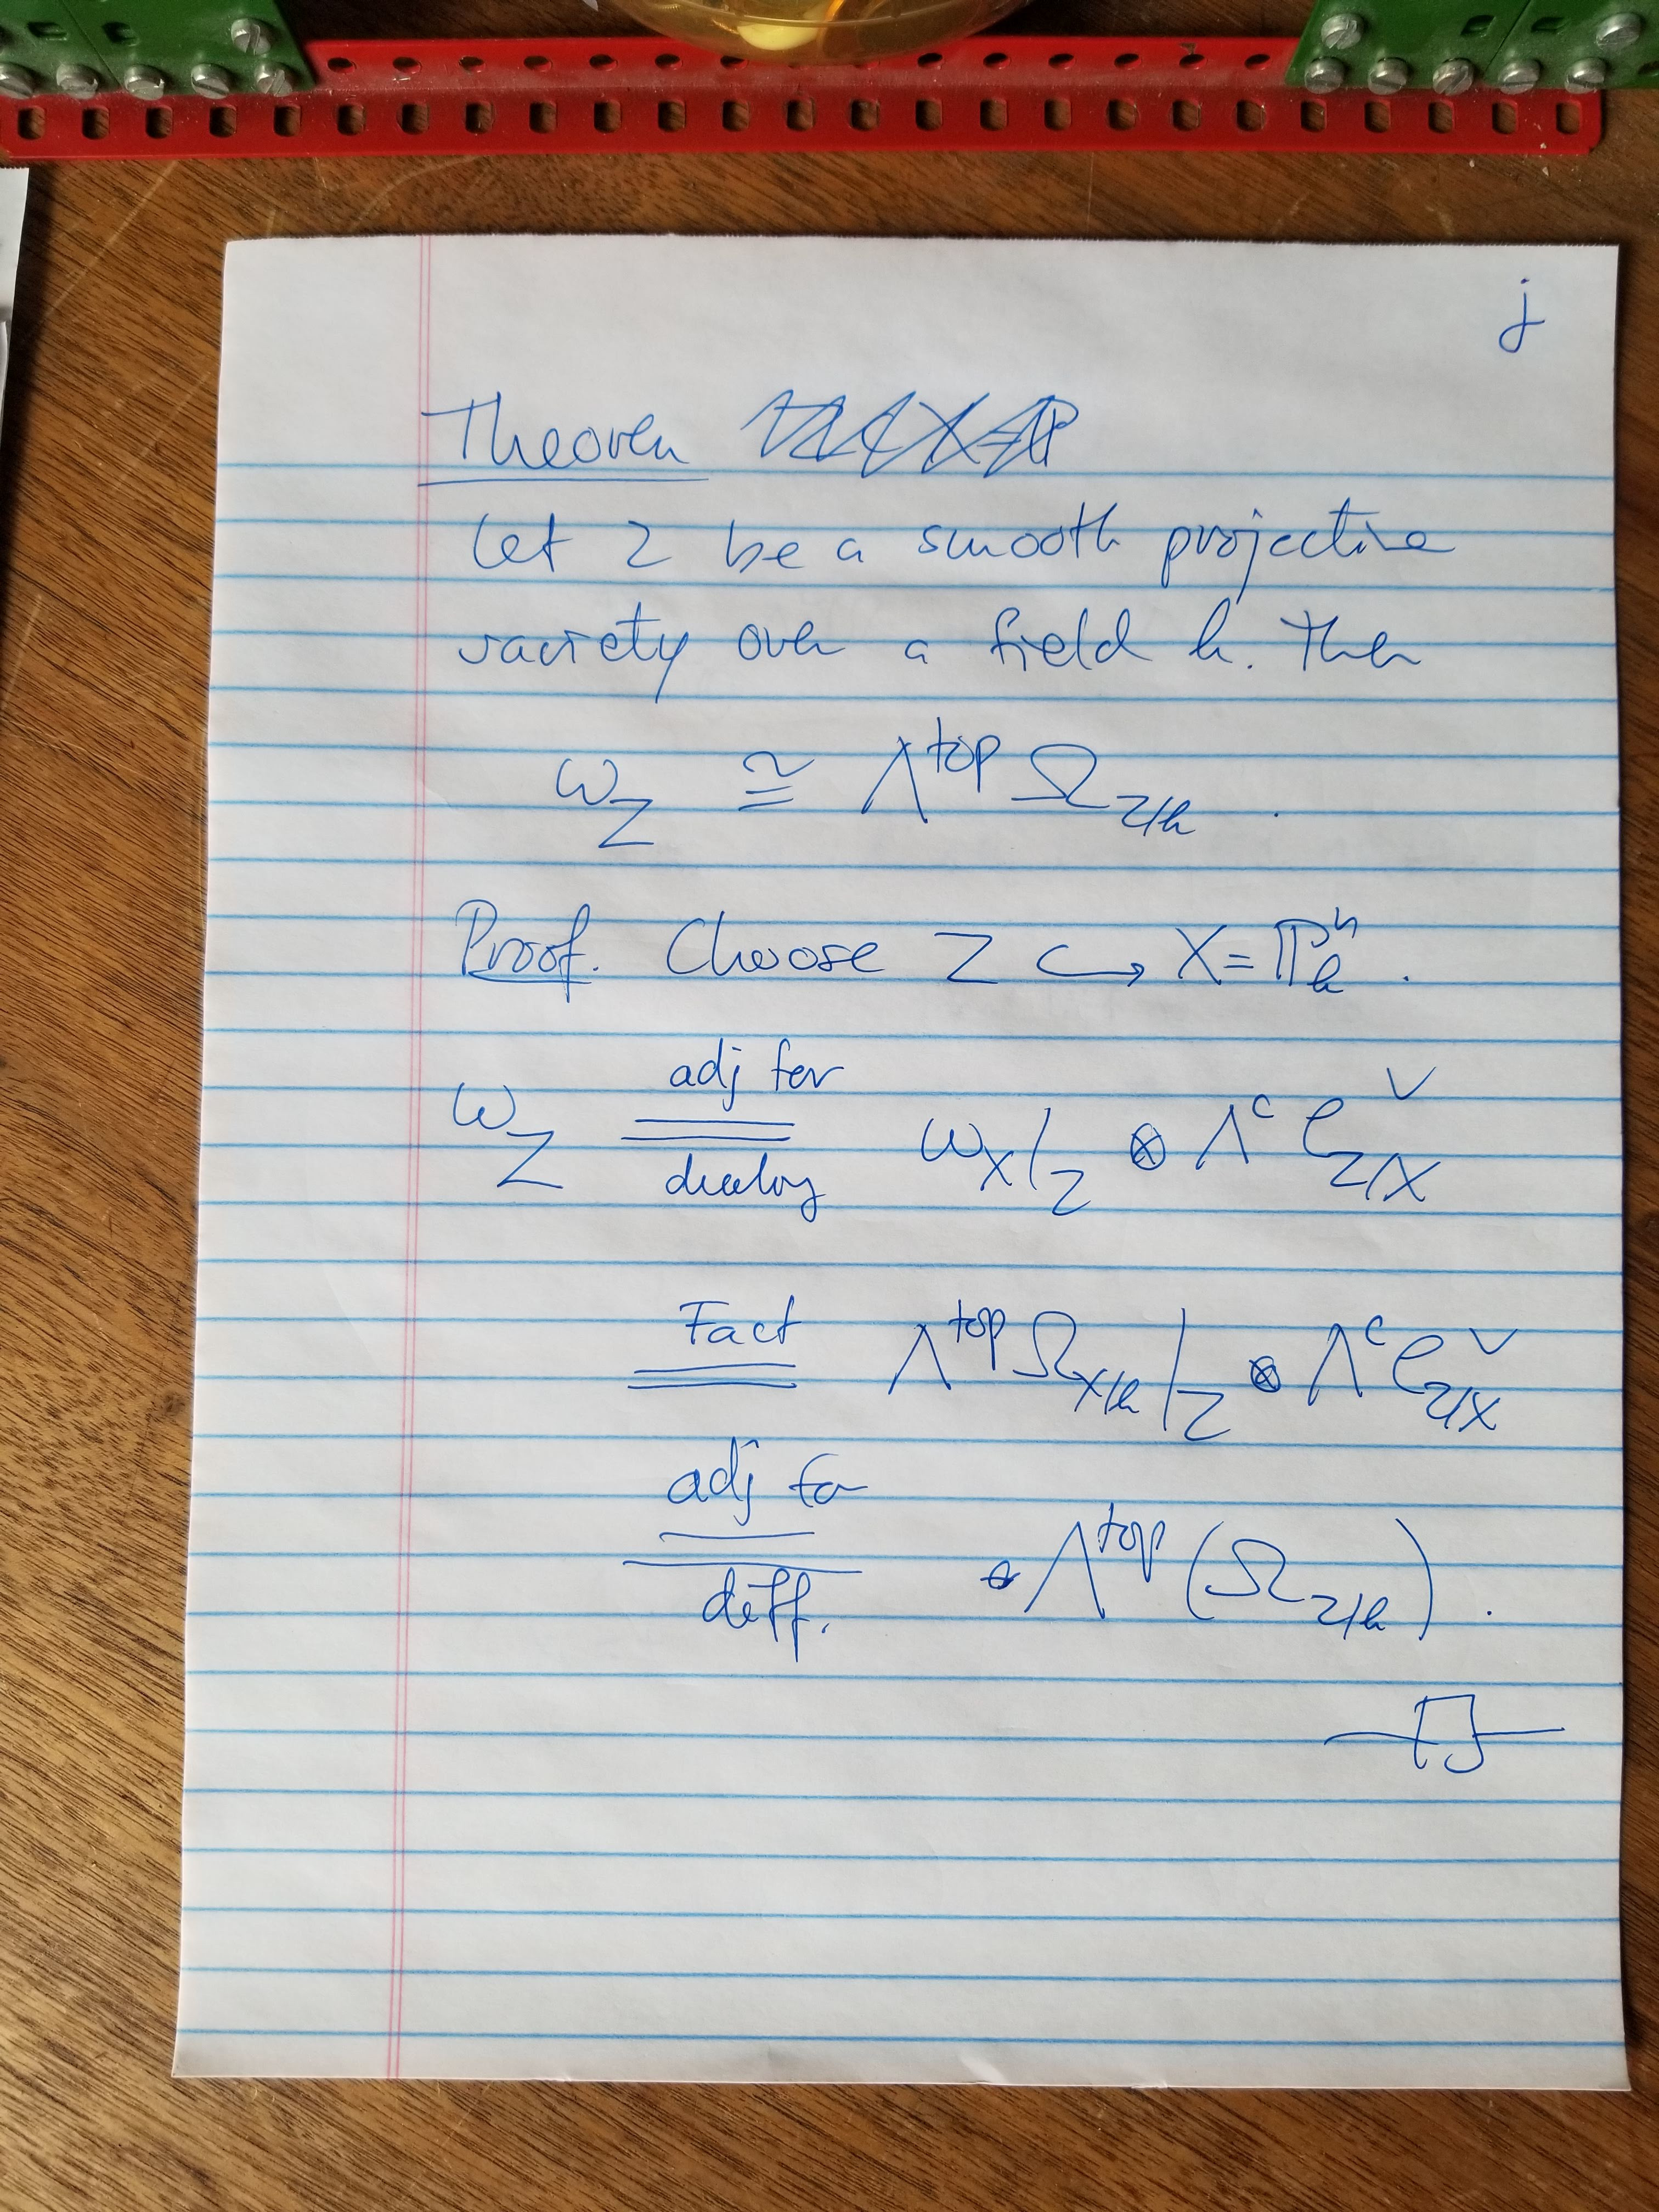 j
Theorem
Let Z be a smooth projective
variety over a field k. Then
ω_Z ≅ Λ^top Ω_{Z/k} .
Proof. Choose Z ↪ X = ℙ^n_k .
adj for
ω_Z = ω_X|_Z ⊗ Λ^c C^∨_{Z/X}
dualizing
Fact
= Λ^top Ω_{X/k}|_Z ⊗ Λ^c C^∨_{Z/X}
adj for
= Λ^top (Ω_{Z/k}) .
diff.